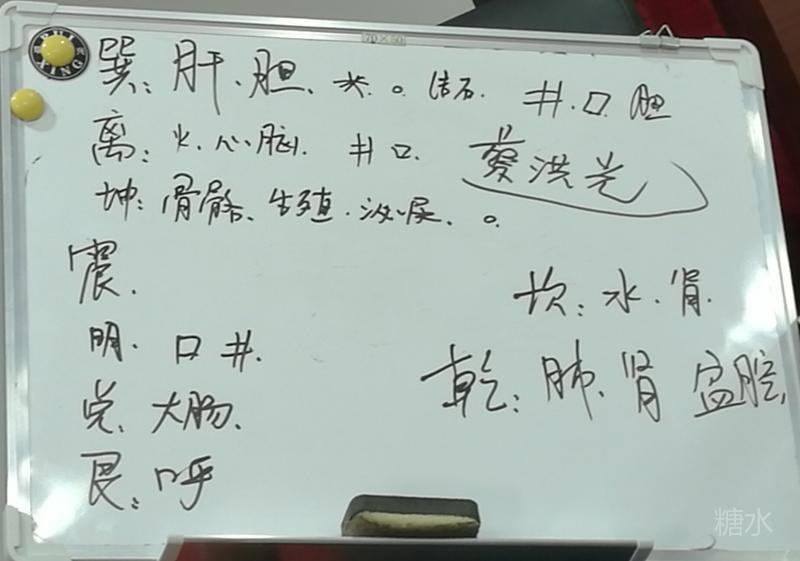 巽：肝、胆、米。o 结石. 井.口 胆
离：火.心脑. 井口. 蔡洪光
坤：骨骼、生殖.泌尿、o.
震.
坎：水.肾.
明. 口井.
乾：肺.肾 盆腔,
兑. 大肠.
艮：呼
XING
70×50
糖水